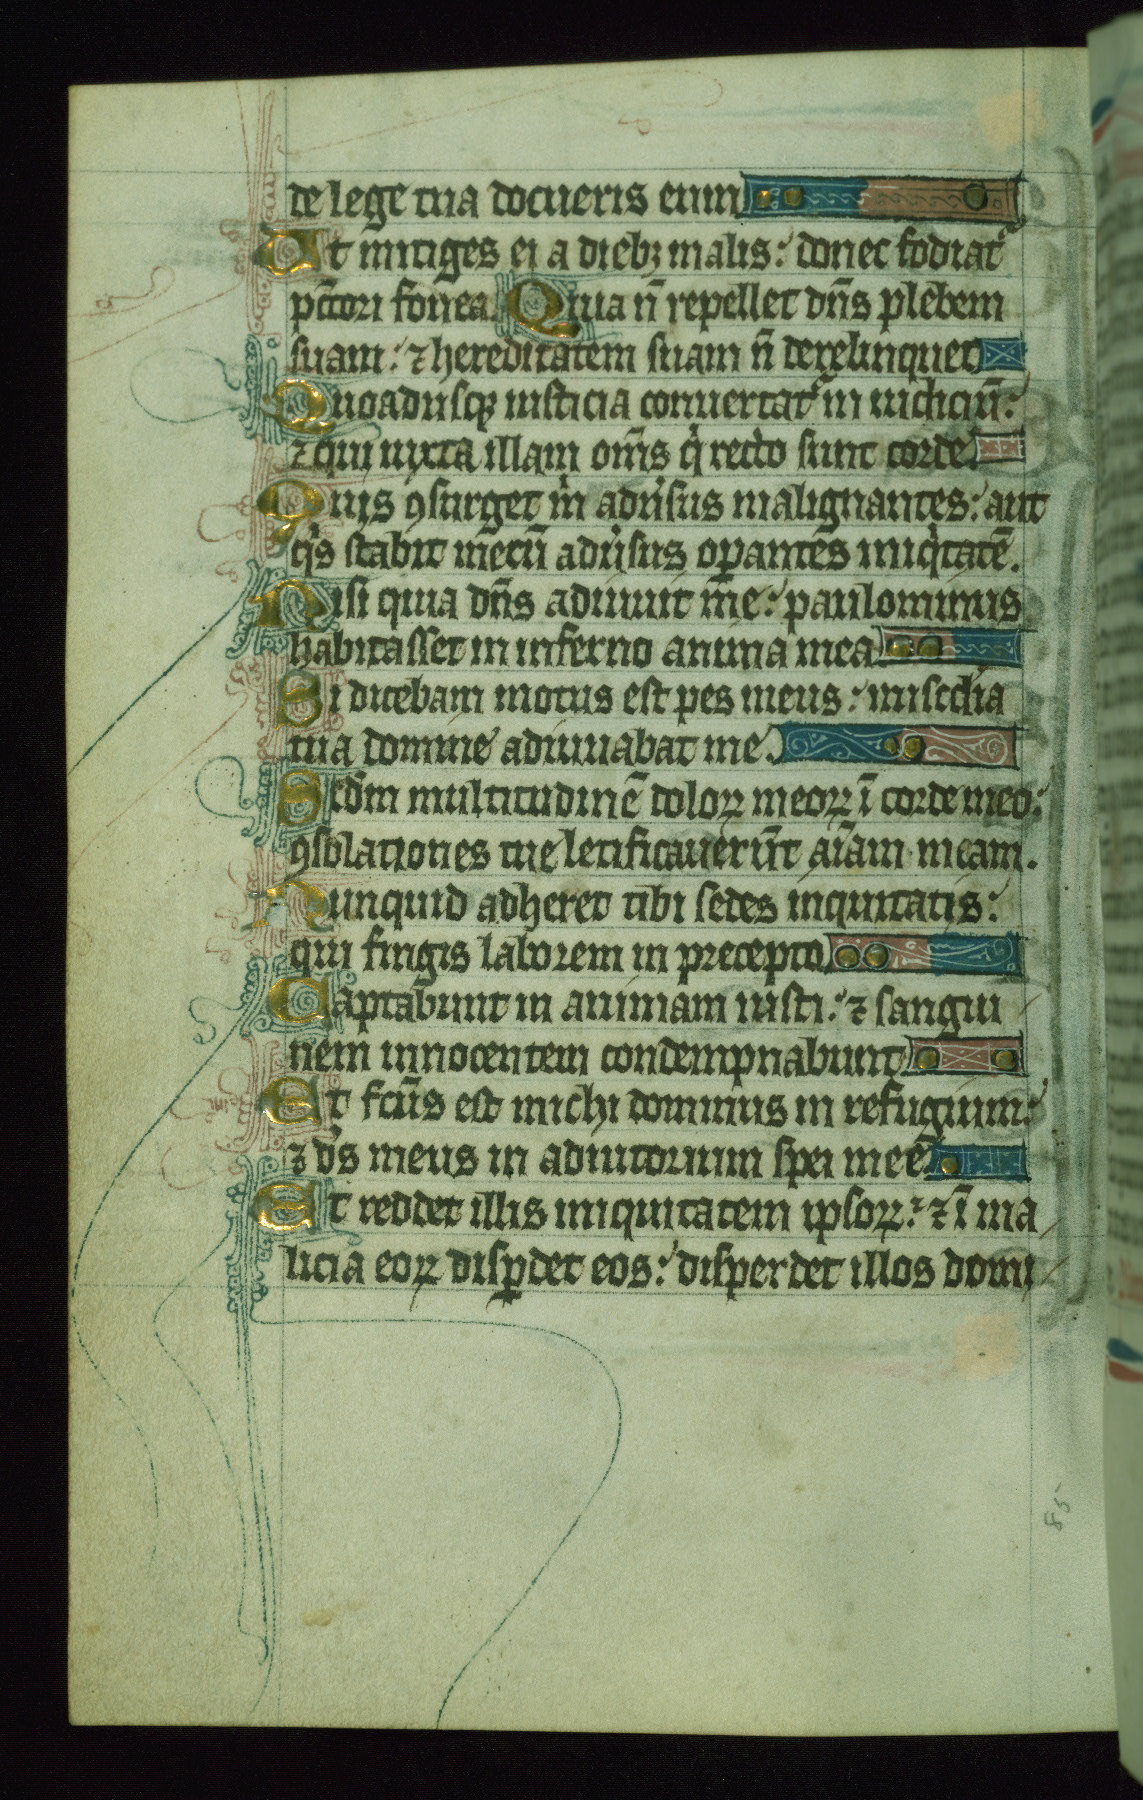 de lege tua docueris eum
Ut mitiges ei a dieb; malis: donec fodiat᷑
pctori fouea. Quia n̄ repellet dn̄s plebem
suam: ⁊ hereditatem suam n̄ derelinquet
Quoadusqꝫ iusticia conuertat᷑ in iudiciū:
⁊ qui iuxta illam om̄s q̇ recto sunt corde.
Quis ꝯsurget ṁ adu̇sus malignantes: aut
q̇s stabit mecū adu̇sus oꝑantes iniq̇tatē.
Nisi quia dn̄s adiuuit me: paulominus
habitasset in inferno anima mea.
Si dicebam motus est pes meus: miscdia
tua domine adiuuabat me.
Scdm multitudinē dolorꝝ meorꝝ ī corde meo:
ꝯsolationes tue letificauerūt aīam meam.
Nunquid adheret tibi sedes inquitatis:
qui fingis laborem in precepto
Captabunt in animam iusti: ⁊ sangui
nem innocentem condempnabunt
Et fcūs est michi dominus in refugium:
⁊ ds meus in adiutorium spei mee
Et reddet illis iniquitatem ipsorꝝ: ⁊ ī ma
licia eorꝝ disꝑdet eos: disperdet illos domi
85